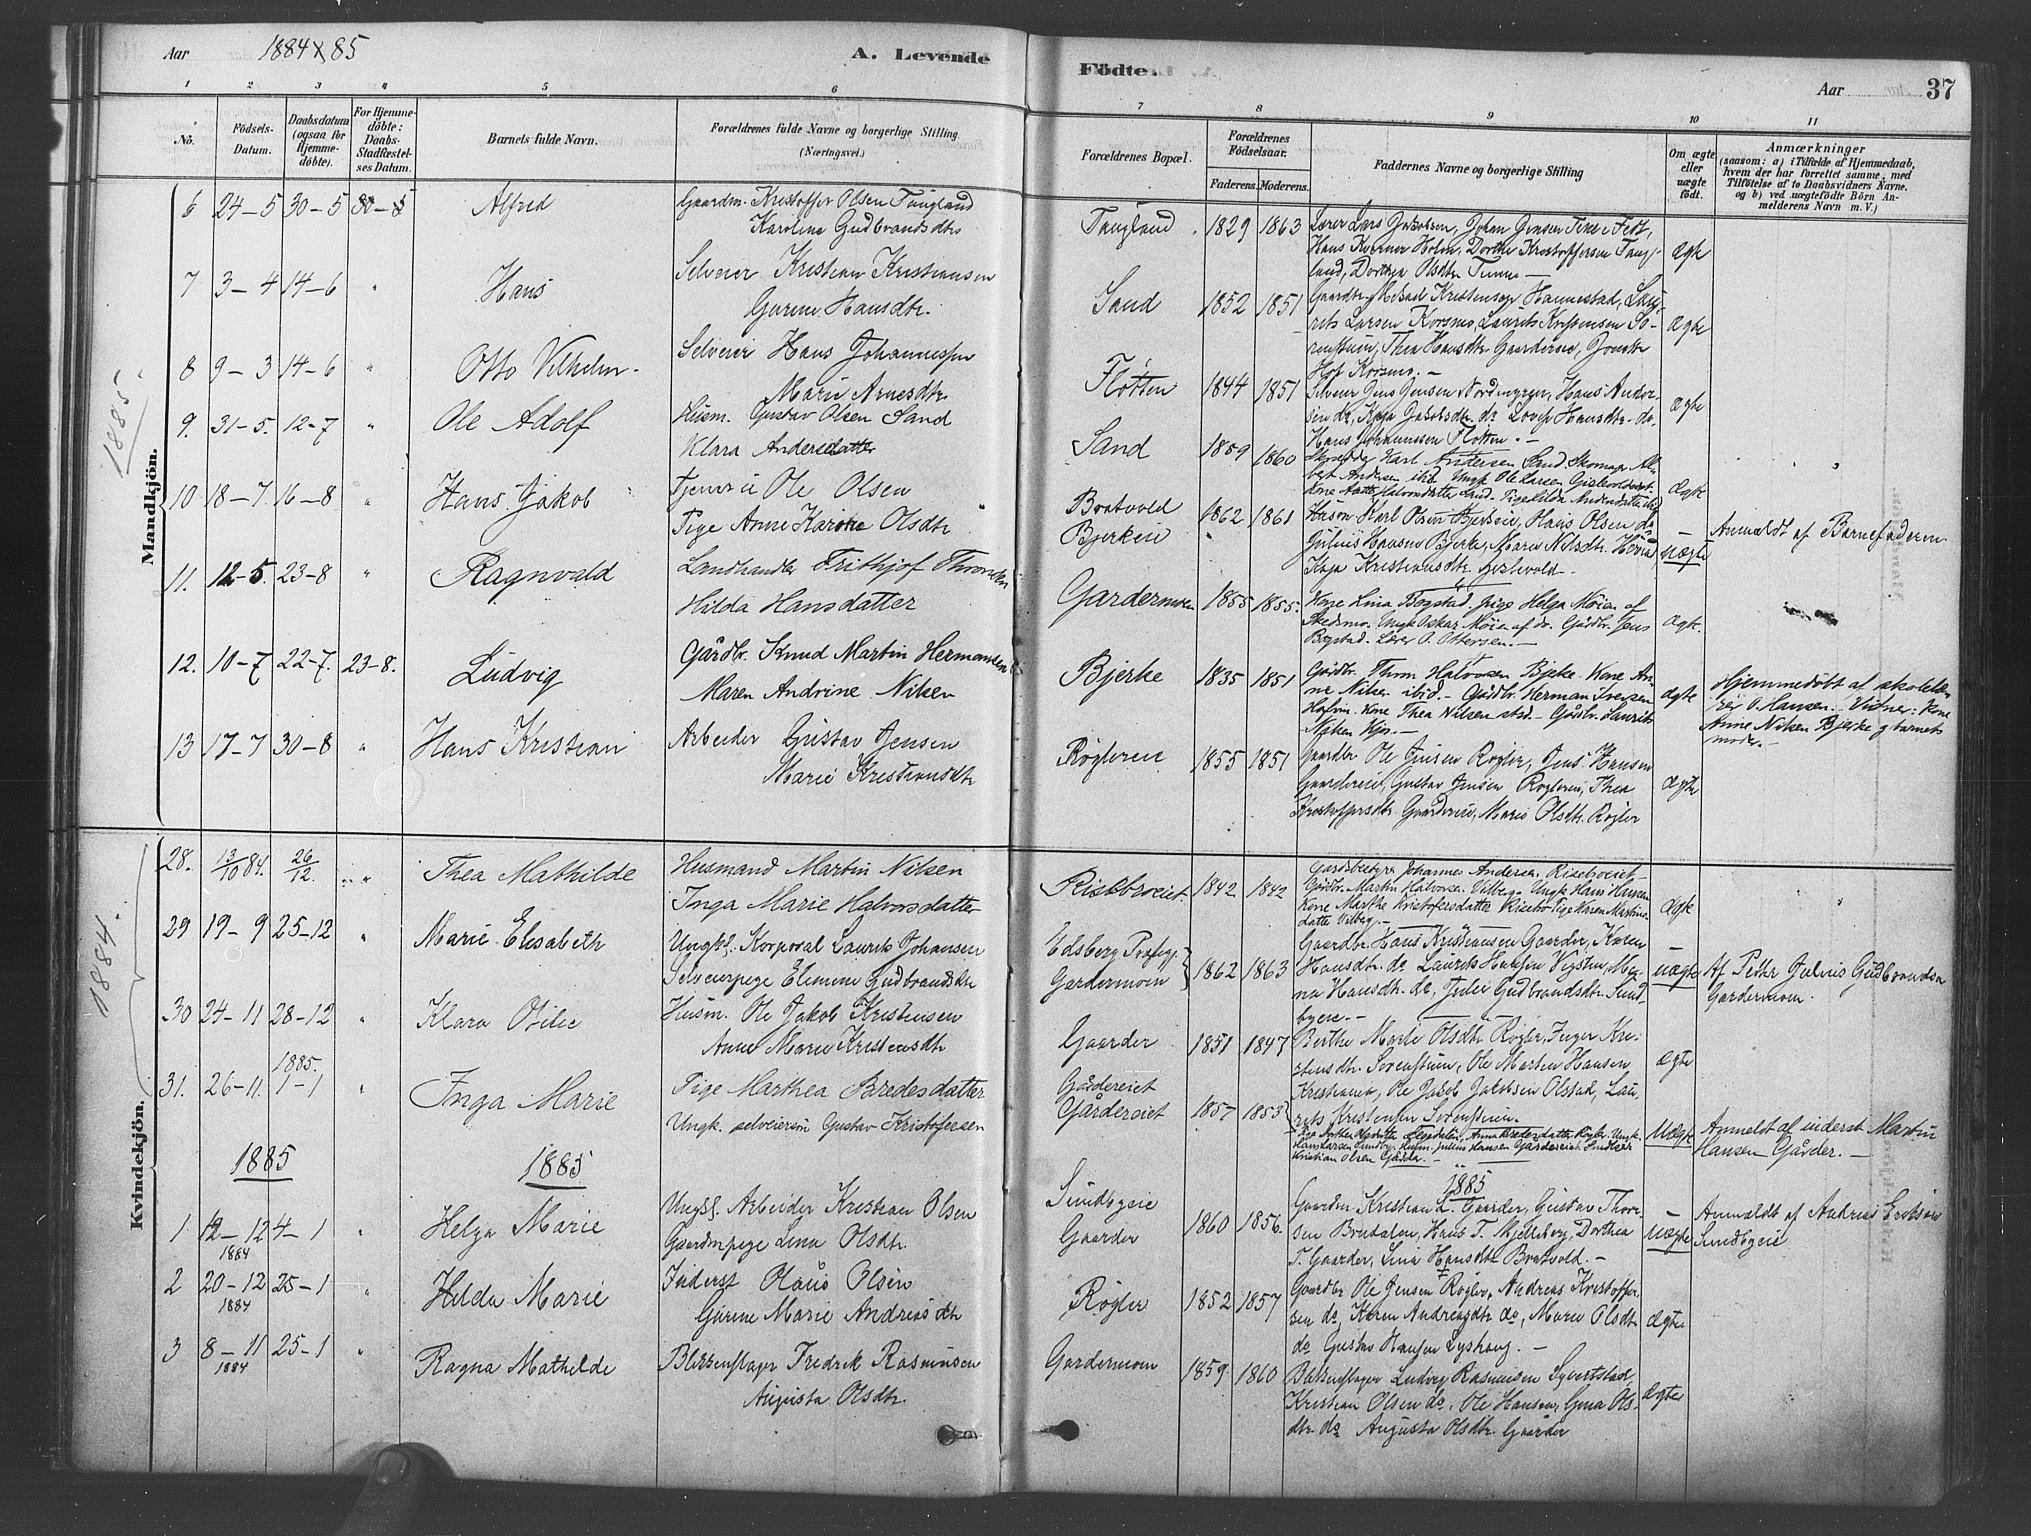 Aar 1884 x 85 A. Levende
Födte. Aar 37
1 2 3 4 5 6
7 8 9 10 11
No. Födsels-Datum. Daabsdatum (ogsaa for Hjemmedöbte). For Hjemmedöbte: Daabs-Stadfæstelses Datum. Barnets fulde Navn. Forældrenes fulde Navne og borgerlige Stilling (Næringsvei.)
Forældrenes Bopæl. Forældrenes Födselsaar. Faderens. Moderens. Faddernes Navne og borgerlige Stilling Om ægte eller uægte födt. Anmærkninger (saasom: a) i Tilfælde af Hjemmedaab, hvem der har forrettet samme, med Tilföielse af to Daabsvidners Navne. og b) ved uægtefödte Börn Anmelderens Navn m. V.)
1885.
Mandkjön.
6 24-5 30-5 30-5 Alfred Gaardm. Kristoffer Olsen Taugland
Karoline Gudbrandsdtr
Taugland 1829 1863 Lærer Lars Jakobsen, Johan Jensen
Hans Holm, Dorthe Kristoffersen Taug-
land, Dorthea Olsdtr
ægte
7 3-4 14-6 " Hans Selveier Kristian Kristiansen
Gurine Hansdtr.
Sand 1852 1851 Kristensen Hannestad, Lau-
rits Larsen Korsmo, Laurits Kristensen So-
renstuen, Thea Hansdtr Gaardereie,
Hof Korsmo. -
ægte
8 9-3 14-6 " Otto Vilhelm. Selveier Hans Johannessen
Marie Arnesdtr
Flotten 1844 1851 Selveier Jens Jensen Hans Ander-
sen do, Kaja Jakobsdtr. do Hansdtr. do.
Hans Johannessen Flotten. -
ægte
9. 31-5. 12-7 " Ole Adolf Husm. Gustav Olsen Sand
Klara Andersdatter
Sand 1859 1860 Karl Andersen Sand. Skomager Al-
bert Andersen ibid. Ungk. Ole Larsen
Kone Halvorsdatter Sand. Pige Hilda Andersdatter ibid
ægte
10 18-7. 16-8 " Hans Jakob Tjener Ole Olsen
Pige Anne Karine Olsdtr
Bratvold
Bjerkeie
1862 1861 Husm Karl Olsen Bjerkeie, Hans Olsen do
Julius Hansen Bjerke, Maren Nilsdtr.
Kaja Kristiansdtr.
uægte Anmældt af Barnefaderen
11. 12-5. 23-8 " Ragnvald Landhandler Frithjof Thronsen
Hilda Hansdatter
Gardermoen 1855 1855. Kone Lina Bogstad. Pige Helga Moien af
Skedsmo. Ungk Oskar Moien af do. Gårdbr. Jens
Bogstad. Lærer O. Ottersen. -
ægte.
12. 10-7 22-7. 23-8. Ludvig Gårdbr. Knud Martin Hermansen
Maren Andrine Nilsen
Bjerke 1835 1851 Gårdbr. Thom Halvorsen Bjerke. Kone An-
ne Nilsen ibid. - Gårdbr. Herman Iversen
Hofvin. Kone Thea Nilsen stsd. - Gårdbr. Laurits
Nilsen -
ægte Hjemmedøbt af skolelæ-
rer O. Hansen. Vidner: Kone
Anne Nilsen Bjerke og barnets
moder. -
13 17-7 30-8 " Hans Kristian Arbeider Gustav Jensen
Marie Kristiansdtr
Røglereie 1855 1851 Gaardbr Ole Jensen Røgler, Jens Hansen
Gaardereie, Gustav Jensen Røglereie, Thea
Kristoffersdtr. Gaardereie, Marie Olsdtr. Røgler
ægte
1884.
Kvindekjön.
28. 13/10 84. 26/12. " Thea Mathilde Husmand Martin Nilsen
Inga Marie Halvorsdatter
Risebroeiet. 1842 1842 Johannes Andersen Risebroeiet
Gårdbr. Martin Halvorsen Vilberg. Ungk Hans Hansen
Kone Marthe Kristofersdatter Risebro Pige Karen Martins-
datter Vilberg. -
ægte
29 19-9 25-12 " Marie Elisabeth Ungk. Korporal Laurits Johansen
Selveierpige Elimine Gudbrandsdtr
Edsberg Præstgj.
Gardermoen
1862 1863 Gaardbr. Hans Kristiansen Gaarder, Karen
Hansdtr. do Laurits Hansen Vigsten,
Hansdtr. do, Julie Gudbrandsdtr. Sund-
byeie. -
uægte Af Petter Julius Gudbrandsen
Gardermoen.
30 24-11 28-12 " Klara Otilie Husm. Ole Jakob Kristensen
Anne Marie Kristensdtr
Gaarder 1851 1847 Berthe Marie Olsdtr Røgler, Inger Kri-
stensdtr. Sorenstuen, Ole Morten Hansen,
Kristiania, Ole Jacob Jakobsen Olstad, Lau-
rits Kristensen Sorenstuen.
ægte
1885.
31. 26-11. 1-1 " Inga Marie Pige Marthea Bredesdatter
Ungk. selveiersøn Gustav Kristofersen
Gårdereiet
Gårdereiet
1857 1853 Olsdatter Anna Kristensdatter Røgler. Ungk.
Hans Larsen Sundby. Husm. Julius Hansen Gårdereiet.
Kristian Olsen Gårder. -
uægte Anmeldt af inderst Martin
Hansen Gårder. -
1885 1885 1885
1 12-12 1884 4-1 " Helga Marie Ungk. Arbeider Kristian Olsen
Gaardmpige Lina Olsdtr.
Sundbyeie
Gaarder
1860 1856. Gaardm. Kristian L. Gaarder, Gustav Thor-
sen Bradalen, Hans T. Mjelleberg, Dorthea
T. Gaarder, Lina Hansdtr Bratvold. -
uægte Anmældt af Andreas Eriksen
Sundbyeie
2 20-12 1884 25-1 " Hilda Marie Inderst Olaus Olsen
Gurine Marie Andreasdtr
Røgler 1852 1857 Gaardbr Ole Jensen Røgler, Andreas Kristoffer-
sen do, Karen Andreasdtr do, Marie Olsdtr
do Gustav Hansen Lyshaug. -
ægte
3 8-11 1884 25-1 " Ragna Mathilde Blikkenslager Fredrik Rasmusen
Augusta Olsdtr.
Gardermoen 1859. 1860 Blikkenslager Ludvig Rasmusen
Kristian Olsen do, Ole Hansen, Gina Ols-
dtr. do Augusta Olsdtr. Gaarder
ægte